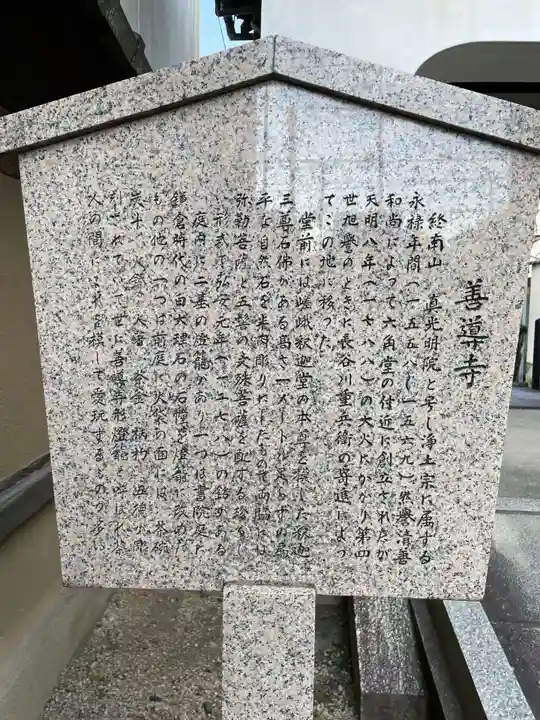 善導寺
終南山 光明院と号し浄土宗に属する
永禄年間(一五五八〜一五六九)然誉清善
和尚によって六角堂の付近に創立されたが
天明八年(一七八八)の大火にかかり第四
世旭誉のときに長谷川重兵衛の寄進によっ
てこの地に移った
堂前には嵯峨釈迦堂の本尊を模した釈迦
三尊石佛がある高さ一メートル足らずの扁
平な自然石を半肉彫りにしたもので両脇には
弥勒菩薩と五髻の文殊菩薩を配する珍らし
い形式で弘安元年(一二七八)の銘がある
庭内に二基の燈籠があり一つは書院庭で
鎌倉時代の由
もの他の一つは前庭に火袋の面には 茶碗
炭斗 火箸 茶釜 柄杓 五徳
世に善導寺形燈籠と呼ばれ茶
人の間に 愛玩するものが多い